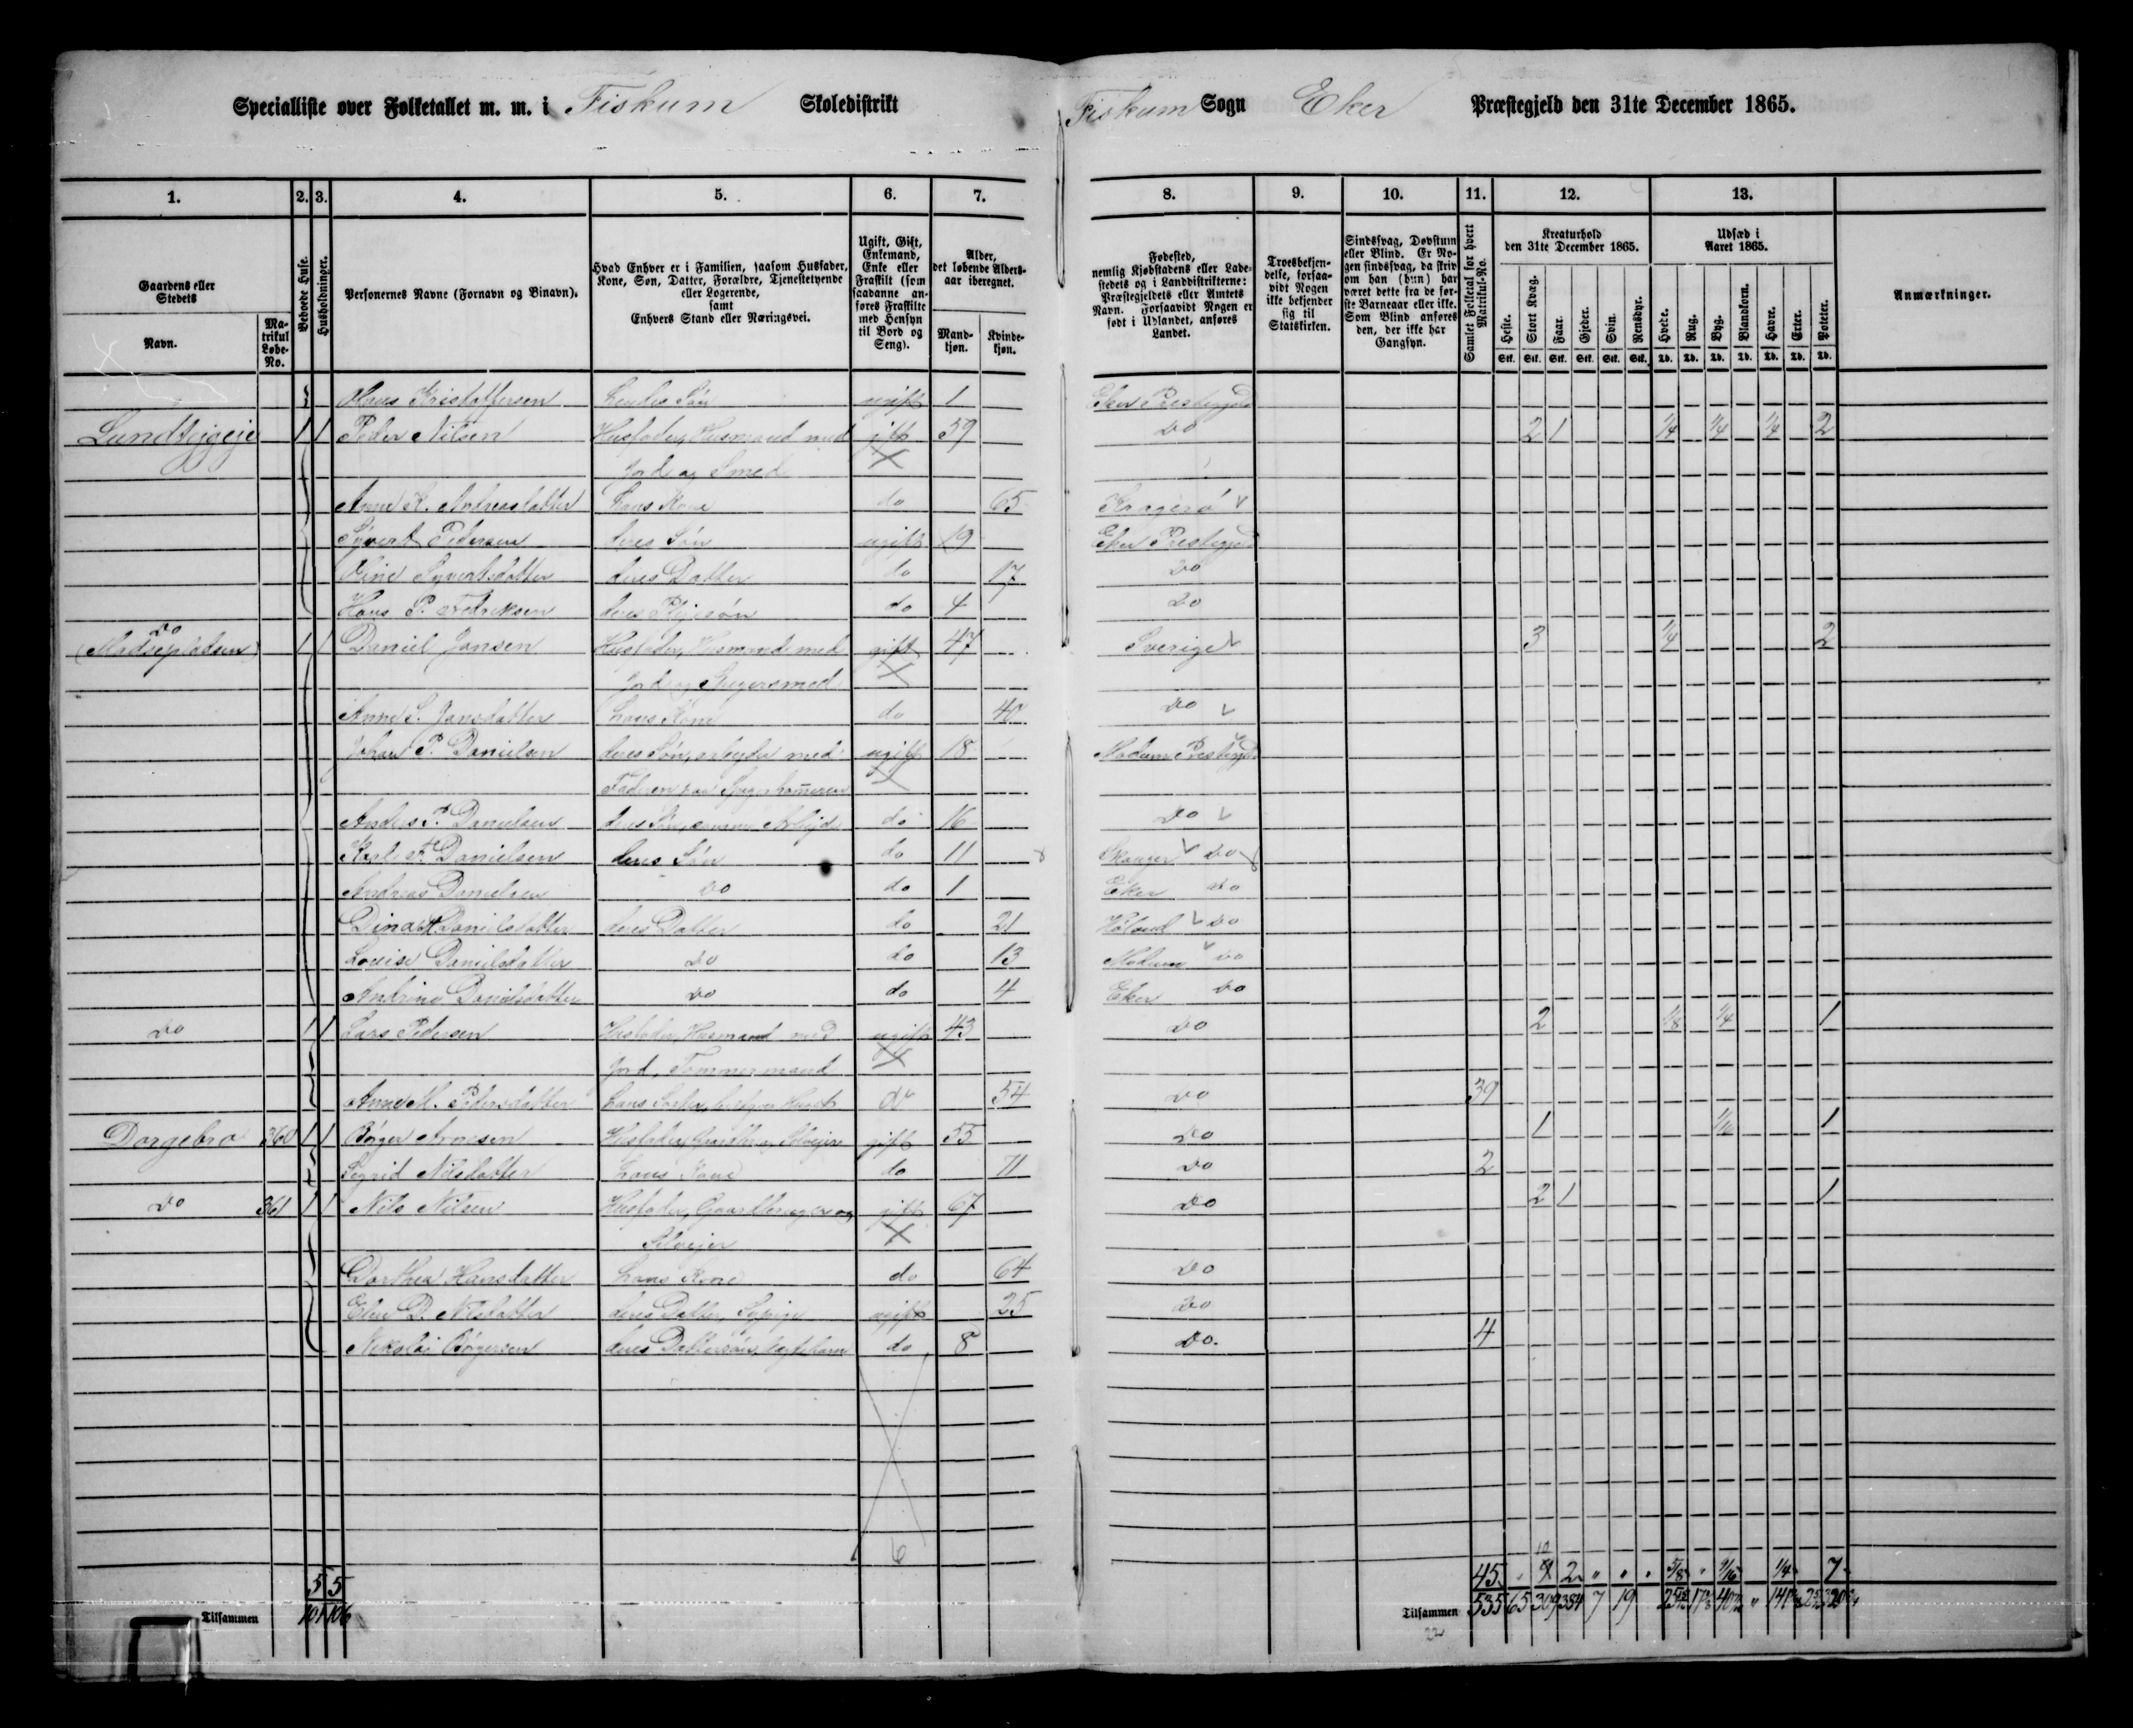 Specialliste over Folketallet m. m. i Fiskum Skoledistrikt Fiskum Sogn Eker Præstegjeld den 31te December 1865.
1. 2. 3. 4. 5. 6. 7. 8. 9. 10. 11. 12. 13.
Gaardens eller Stedets
Navn.
Matrikul Løbe-No.
Beboede Huse.
Husholdninger.
Personernes Navne (Fornavn og Binavn).
Hvad Enhver er i Familien, saasom Husfader, Kone, Søn, Datter, Forældre, Tjenestetyende eller Logerende, samt Enhvers Stand eller Næringsvei.
Ugift, Gift, Enkemand, Enke eller Fraskilt (som saadanne anføres Fraskilte med Hensyn til Bord og Seng).
Alder, det løbende Alders-aar iberegnet.
Mandkjøn. Kvindekjøn.
Fødested, nemlig Kjøbstadens eller Ladestedets og i Landdistrikterne: Præstegjeldets eller Amtets Navn. Forsaavidt Nogen er født i Udlandet, anføres Landet.
Troesbekjendelse, forsaavidt Nogen ikke bekjender sig til Statskirken.
Sindssvag, Døvstum eller Blind. Er Nogen sindssvag, da skriv om han (hun) har været dette fra de første Barneaar eller ikke. Som Blind anføres den, der ikke har Gangsyn.
Samlet Folketal for hvert Matrikul-No.
Kreaturhold den 31te December 1865.
Heste. Stort Kvæg. Faar. Gjeder. Svin. Rensdyr.
Stk. Stk. Stk. Stk. Stk. Stk.
Udsæd i Aaret 1865.
Hvede. Rug. Byg. Blandkorn. Havre. Erter. Poteter.
Td. Td. Td. Td. Td. Td. Td.
Anmærkninger.
Hans Kristoffersen hendes Søn ugift 1 Eker Prestegjeld
1 1 Peder Nilsen Husfader, Husmand med gift 59 Do 2 1 1/4 1/4 1/4 2
Jord og Smed
Anne K. Andreasdatter Hans Kone do 65 Kragerø
Syvert Pedersen deres Søn ugift 19 Eker Prestegjeld
Syvertsdatter deres Datter do 17 Do
Hans P. Fedriksen deres Plejesøn do 4 Do
Do
(Madsepladsen) 1 1 Daniel Jansen Husfader, Husmand med gift 47 Sverige 3 1/4 2
Jord og Spigersmed
Anne S. Jansdatter hans Kone do Do
Johan P. Danielsen deres Søn, arbejder med ugift 18 Modum Prestegjeld
Faderen
Anders P. Danielsen deres Søn, samme Arbejde do 16 Do
Karl F. Danielsen deres Søn do 11 Skauger Do
Andreas Danielsen Do do 1 Eker do
Dina Danielsdatter deres Datter do 21 Do
Lovise Danielsdatter Do do 13 Modum Do
Andrine Danielsdatter Do do 4 Eker Do
Do 1 1 Lars Pedersen Husfader, Husmand med ugift 43 Do 2 1/8 1/4 1
Jord, Tømmermand
Anne M. Pedersdatter hans Søster, do 54 Do 39
Dorgebro 360 1 1 Børger Arnesen Husfader, Gaardbr. og Selvejer gift 55 Do 1 1/16 1
Sigrid Nilsdatter hans Kone do 71 Do 2
Do 361 1 1 Nils Nilsen Husfader, Gaardbruger og gift 67 Do 2 1 1
Selvejer
Dorthea Hansdatter hans Kone do 64 Do
Eline D. Nilsdatter deres Datter, Sypige ugift 25 Do
Nikolai Børgersen deres Dattersøn, do 8 Do. 4
6
5 5 45 10 2 " " " 5/8 " 9/16 1/4 7
Tilsammen 101 106 Tilsammen 535 65 309 384 7 19
22